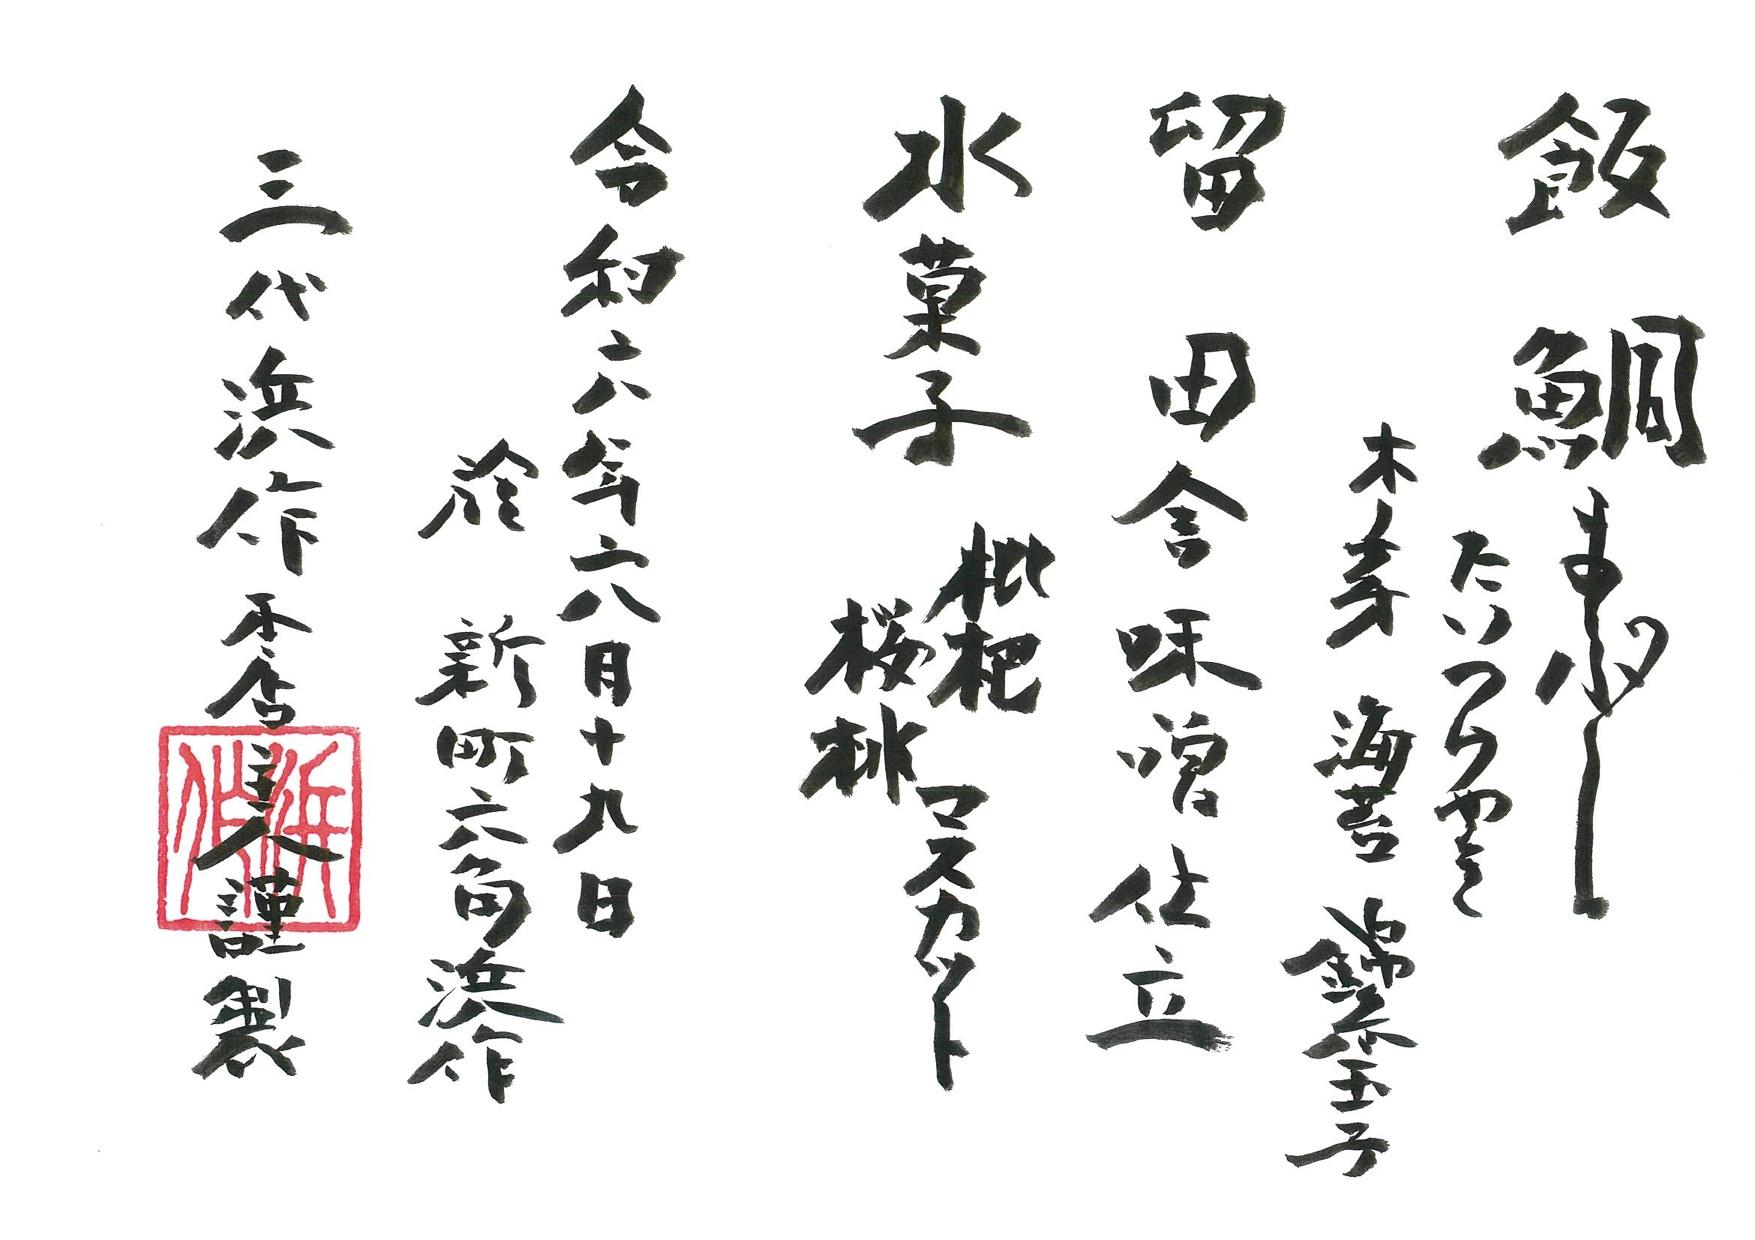 飯 鯛まぶし
木ノ芽 海苔 錦糸玉子
留 田舎味噌仕立
水菓子 枇杷 マスカット
桜桃
令和六年六月十九日
於 新町六角浜作
三代浜作本店主人謹製
浜作